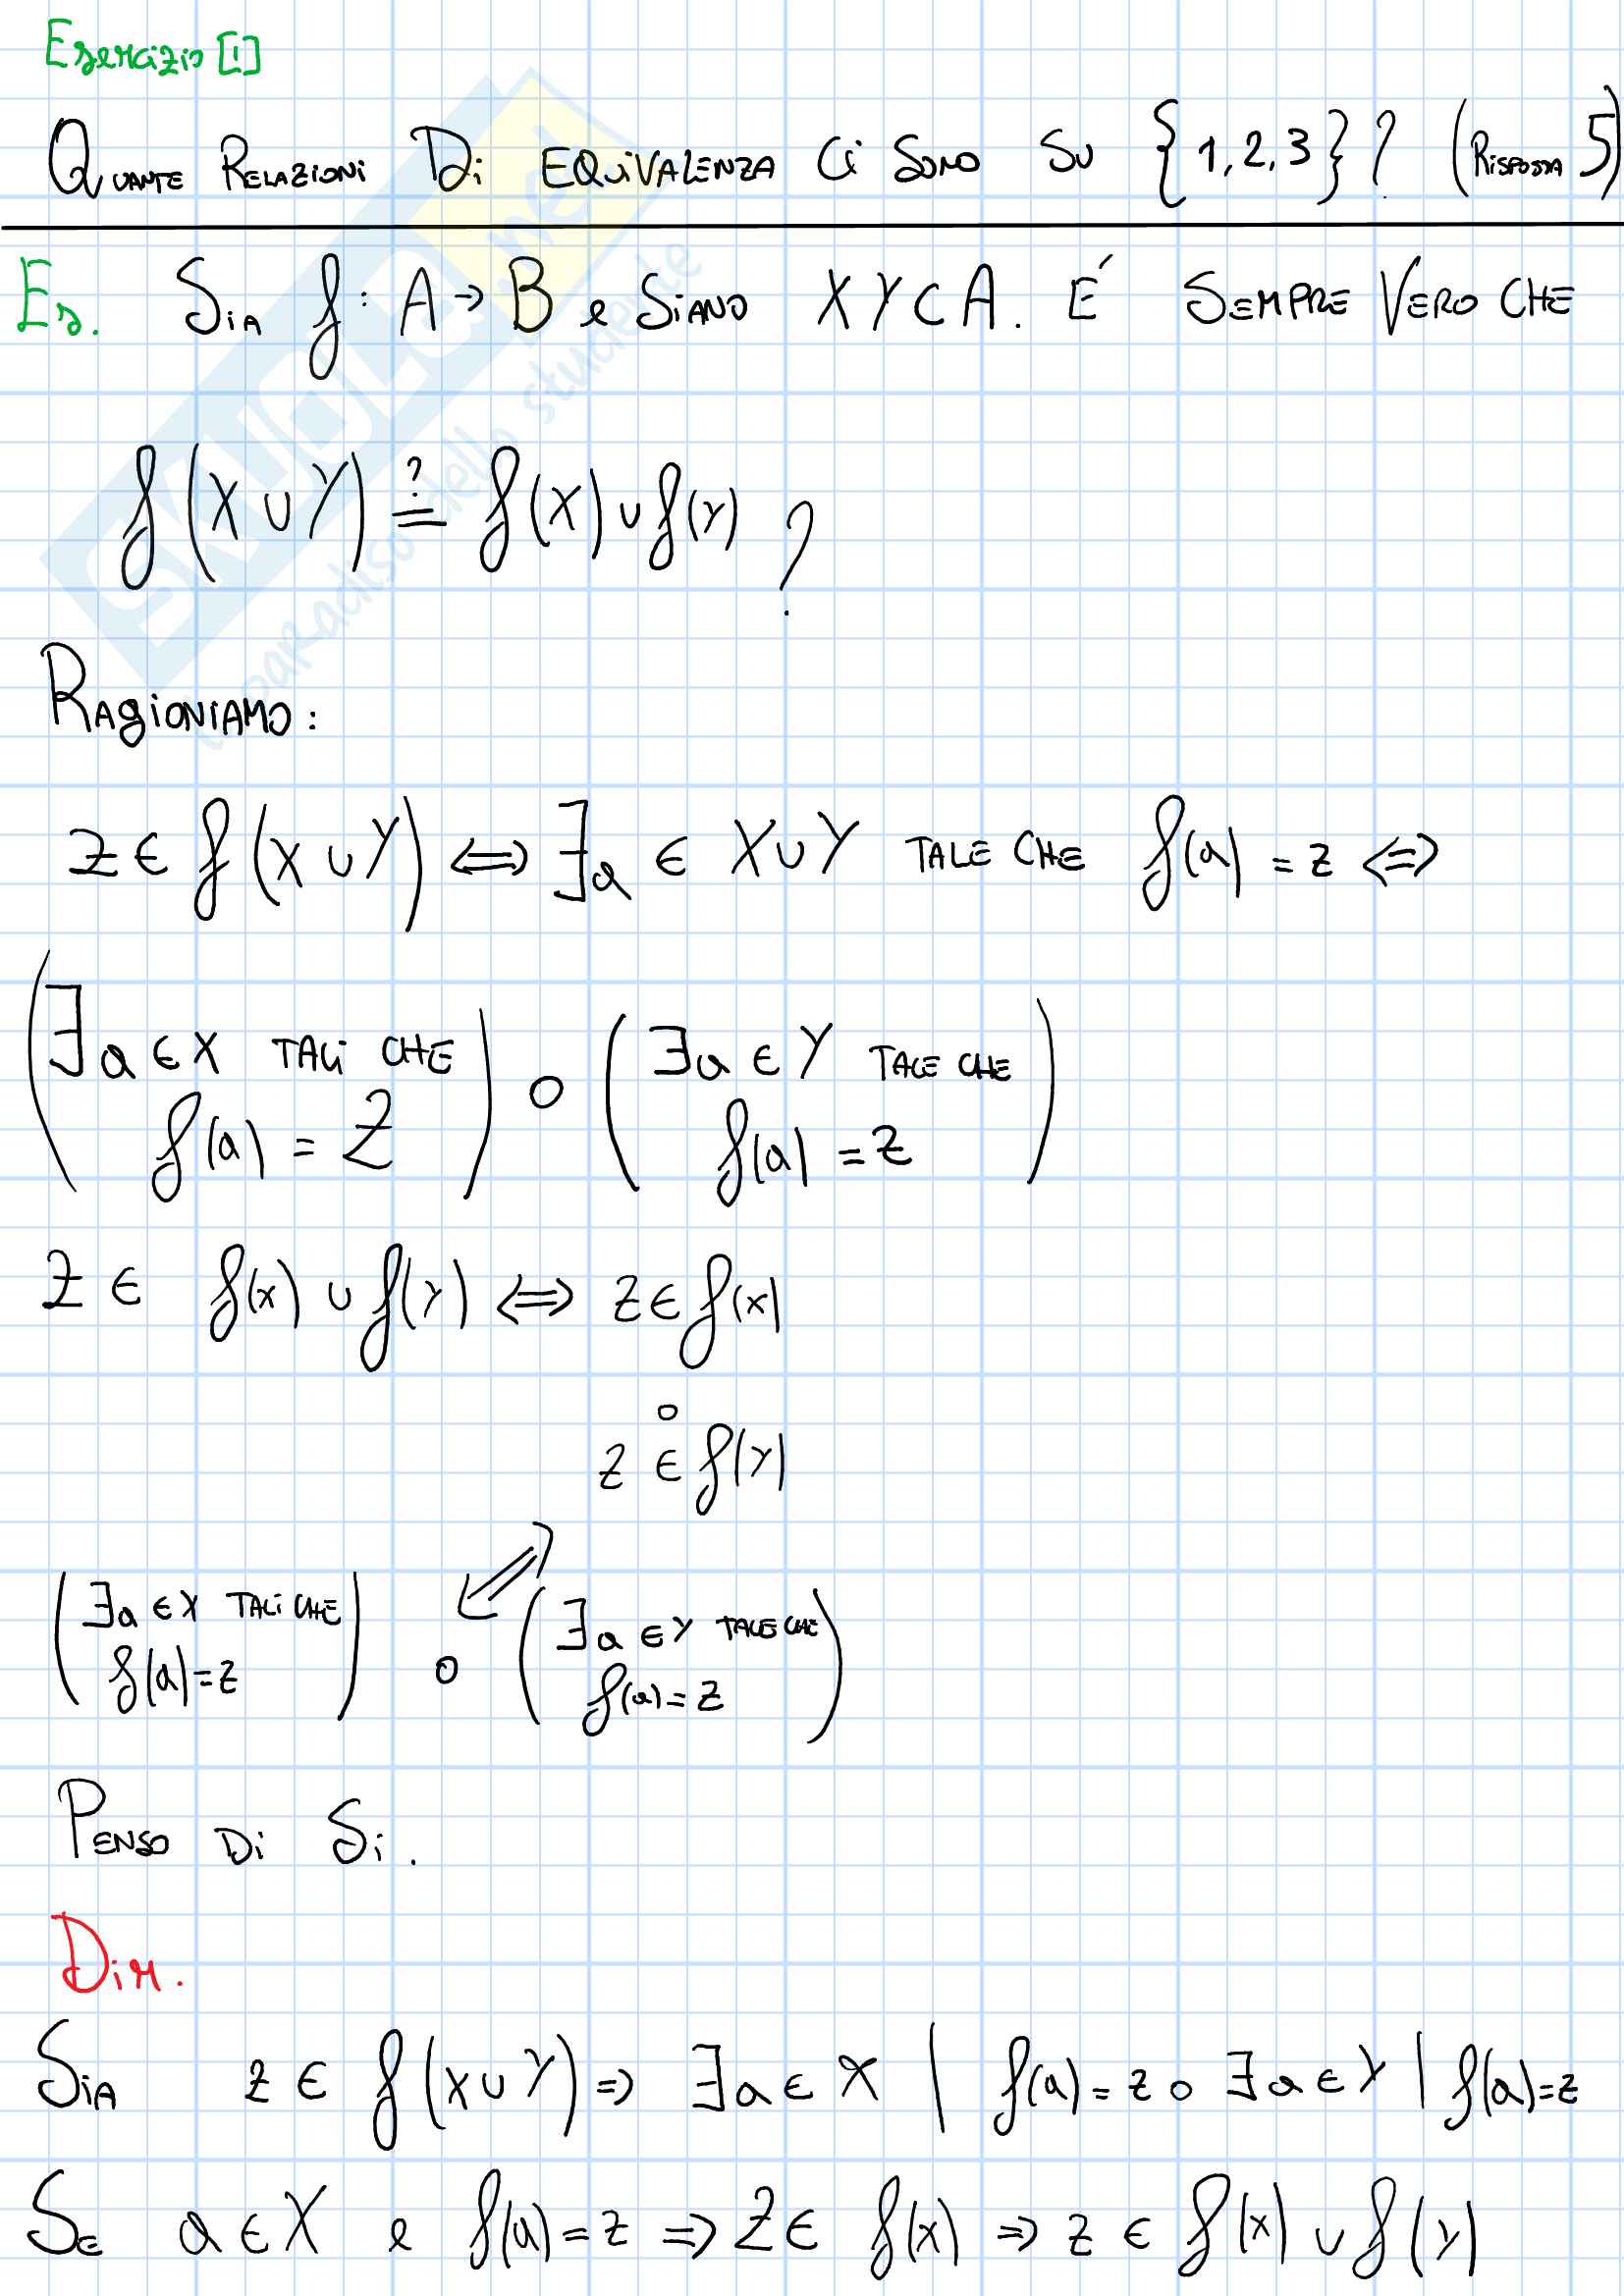 Esercizio [1]
QUANTE RELAZIONI Di EQUiVALENZA Ci SONO SU {1,2,3}? (RISPOSTA 5)
Es. SiA f: A → B e SiANO X Y ⊂ A. É SEMPRE VERO CHE
f(X ∪ Y) ≟ f(X) ∪ f(Y) ?
RAGiONIAMO:
z ∈ f(X ∪ Y) ⟺ ∃a ∈ X ∪ Y TALE CHE f(a) = z ⟺
(∃a ∈ X TALi CHE f(a) = Z) o (∃a ∈ Y TALE CHE f(a) = z)
Z ∈ f(x) ∪ f(Y) ⟺ z ∈ f(x)
o
z ∈ f(Y)
⟺
(∃a ∈ X TALi CHE f(a) = z) o (∃a ∈ Y TALE CHE f(a) = z)
PENSO Di Si.
Dim.
SiA z ∈ f(X ∪ Y) ⇒ ∃a ∈ X | f(a) = z o ∃a ∈ Y | f(a) = z
SE a ∈ X e f(a) = z ⇒ Z ∈ f(x) ⇒ z ∈ f(x) ∪ f(Y)
SKUOLA.net
il paradiso dello studente